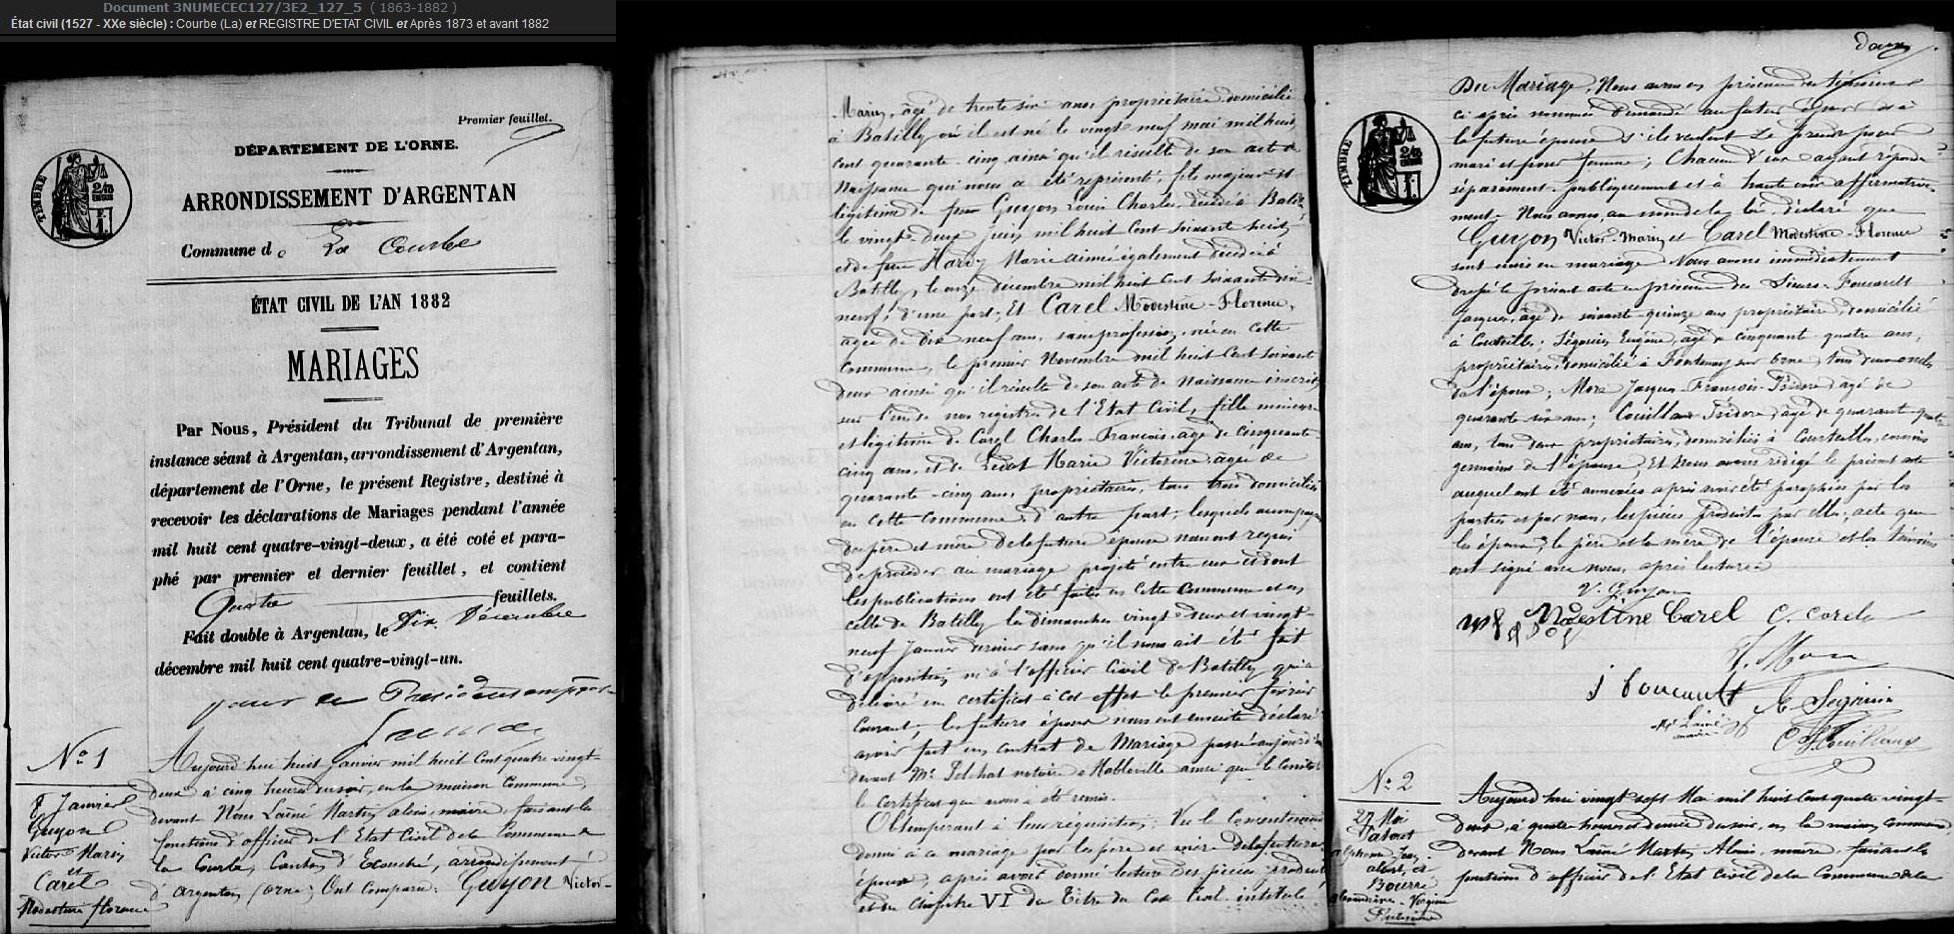 Document 3NUMECEC127/3E2_127_5 ( 1863-1882 )
État civil (1527 - XXe siècle) : Courbe (La) et REGISTRE D'ETAT CIVIL et Après 1873 et avant 1882
Premier feuillet.
DÉPARTEMENT DE L'ORNE.
TIMBRE
ARRONDISSEMENT D'ARGENTAN
Commune de La Courbe
ÉTAT CIVIL DE L'AN 1882
MARIAGES
Par Nous, Président du Tribunal de première
instance séant à Argentan, arrondissement d'Argentan,
département de l'Orne, le présent Registre, destiné à
recevoir les déclarations de Mariages pendant l'année
mil huit cent quatre-vingt-deux, a été coté et para-
phé par premier et dernier feuillet, et contient
Quatre feuillets.
Fait double à Argentan, le Dix Décembre
décembre mil huit cent quatre-vingt-un.
pour le Président
No 1
8 Janvier
Guyon
Victor Marin
et
Carel
Modestine florence
Aujourd'hui huit Janvier mil huit Cent quatre vingt-
deux à cinq heures du soir, en la maison Commune,
devant Nous Lainé Martin alexis, maire, faisant les
fonctions d'officier de l'Etat Civil de la Commune de
la Courbe, Canton d'Ecouché, arrondissement
d'argentan (orne) Ont Comparu: Guyon Victor-
Marin, âgé de trente six ans propriétaire domicilié
à Batilly où il est né le vingt neuf mai mil huit
cent quarante-cinq ainsi qu'il résulte de son acte de
Naissance qui nous a été représenté, fils majeur et
légitime de feu Guyon Louis Charles, décédé à Batilly
le vingt-deux juin mil huit Cent soixante huit
et de feue Hardy Marie aimée également décédée à
Batilly, le onze décembre mil huit cent soixante dix-
neuf, d'une part. Et Carel Modestine-Florence,
agée de Dix neuf ans, sans profession, née en cette
Commune, le premier Novembre mil huit Cent soixante
deux ainsi qu'il résulte de son acte de naissance inscrit
sur l'un de nos registres de l'Etat Civil, fille mineure
et légitime de Carel Charles-François, âgé de Cinquante-
cinq ans, et de Marie Victorine, agée de
quarante-cinq ans, propriétaires, tous trois domiciliés
en cette Commune, d'autre part; lesquels accompagnés
des père et mère de la future épouse nous ont requis
de procéder au mariage projeté entre eux et dont
les publications ont été faites en cette Commune et en
celle de Batilly les dimanches vingt-deux et vingt-
neuf Janvier dernier sans qu'il nous ait été fait
d'opposition ni à l'officier Civil de Batilly qui a
délivré un certificat à cet effet le premier février
Courant; les futurs époux nous ont ensuite déclaré
avoir fait un contrat de Mariage passé aujourd'hui
devant Me Pelchat notaire à Habloville ainsi que le constate
le certificat qui nous a été remis.
Obtempérant à leur réquisition, Vu le Consentement
donné à ce mariage par les père et mère de la future
épouse, après avoir donné lecture des pièces produites
et du Chapitre VI du Titre du Code Civil intitulé
deux
TIMBRE
Du Mariage, Nous avons en présence des témoins
ci après nommés demandé au futur époux et à
la future épouse s'ils veulent se prendre pour
mari et pour femme; Chacun d'eux ayant répondu
séparément, publiquement et à haute voix affirmative-
ment. Nous avons, au nom de la loi, déclaré que
Guyon Victor-Marin et Carel Modestine-Florence
sont unis en mariage. Nous avons immédiatement
dressé le présent acte en présence des Sieurs Foucault
Jacques, âgé de soixante-quinze ans propriétaire, domicilié
à Courteilles; Séguin Eugène, âgé de cinquante quatre ans,
propriétaire, domicilié à Fontenay sur Orne, tous deux oncles
de l'époux; More Jacques-François-Isidore, âgé de
quarante six ans; Couillard Isidore, âgé de quarante quatre
ans, tous deux propriétaires, domiciliés à Courteilles, cousins
germains de l'épouse. Et Nous avons rédigé le présent acte
auquel ont été annexées après avoir été paraphées par les
parties et par nous, les pièces produites par elles; acte que
les époux, le père et la mère de l'épouse et les témoins
ont signé avec nous, après lecture.
V. Guyon
Modestine Carel C. Carel
J foucault
Lainé
maire
No 2
27 Mai
Bourré
Aujourd'hui vingt sept Mai mil huit Cent quatre vingt-
deux, à quatre heures et demie du soir, en la maison commune
devant Nous Lainé Martin Alexis, maire, faisant les
fonctions d'officier de l'Etat Civil de la Commune de la